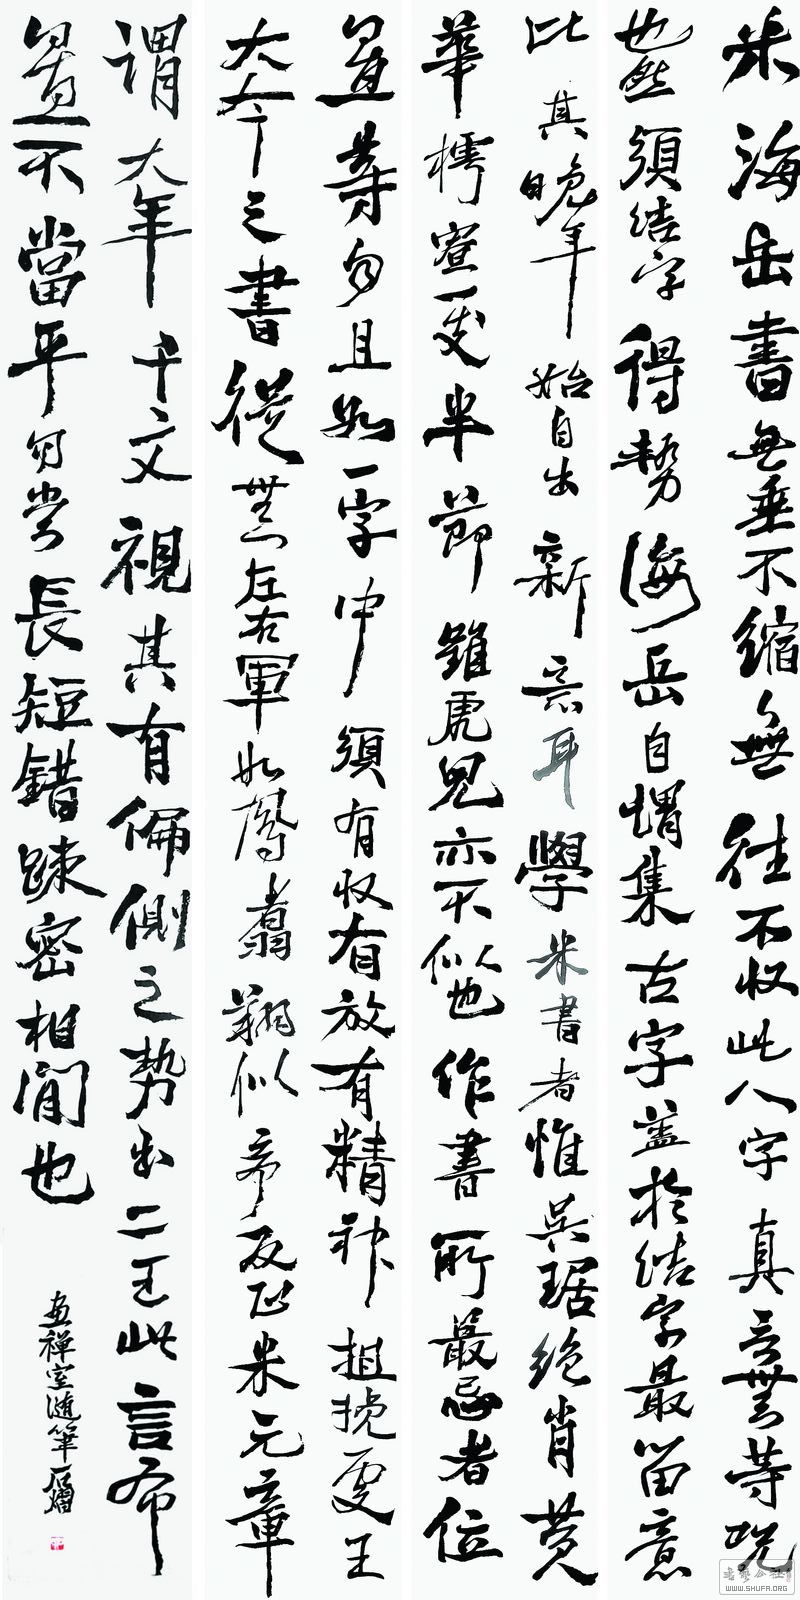 米海岳書無垂不縮無往不收此八字真言無等咒
也然須結字得勢海岳自謂集古字蓋於結字最留意
比其晚年始自出新意耳學米書者惟吳琚絶肖黄
華樗寮一支半節雖虎兒亦不似也作書所最忌者位
置等勻且如一字中須有收有放有精神相挽處王
大令之書從無左右軍如鳳翥翔似奇反正米元章
謂大年千文視其有偏側之勢出二王此言布
置不當平勻當長短錯疎密相間也
畫禪室隨筆
WWW.SHUFA.ORG